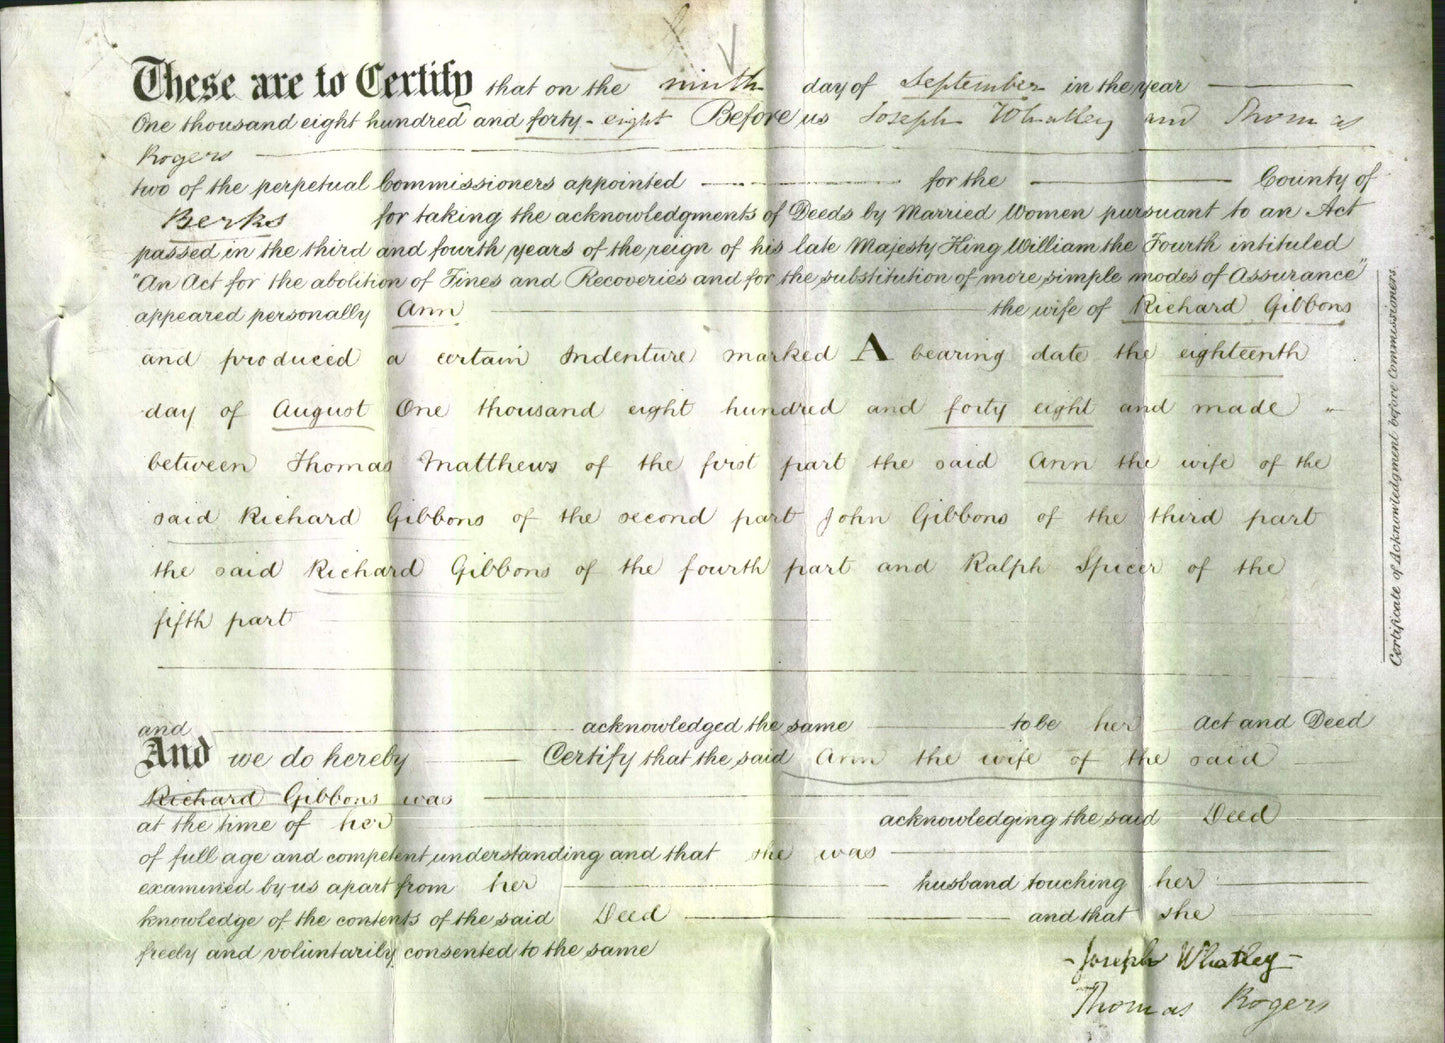 These are to Certify that on the ninth day of September in the year
One thousand eight hundred and forty-eight Before us Joseph Whatley and Thomas
Rogers
two of the perpetual Commissioners appointed for the County of
Berks for taking the acknowledgments of Deeds by Married Women pursuant to an Act
passed in the third and fourth years of the reign of his late Majesty King William the Fourth intituled
"An Act for the abolition of Fines and Recoveries and for the substitution of more simple modes of Assurance"
appeared personally Ann the wife of Richard Gibbons
and produced a certain Indenture marked A bearing date the eighteenth
day of August One thousand eight hundred and forty eight and made
between Thomas Matthews of the first part the said Ann the wife of the
said Richard Gibbons of the second part John Gibbons of the third part
the said Richard Gibbons of the fourth part and Ralph Spicer of the
fifth part
and acknowledged the same to be her Act and Deed
And we do hereby Certify that the said Ann the wife of the said
Richard Gibbons was
at the time of her acknowledging the said Deed
of full age and competent understanding and that she was
examined by us apart from her husband touching her
knowledge of the contents of the said Deed and that she
freely and voluntarily consented to the same
Joseph Whatley
Thomas Rogers
Certificate of Acknowledgment before Commissioners.